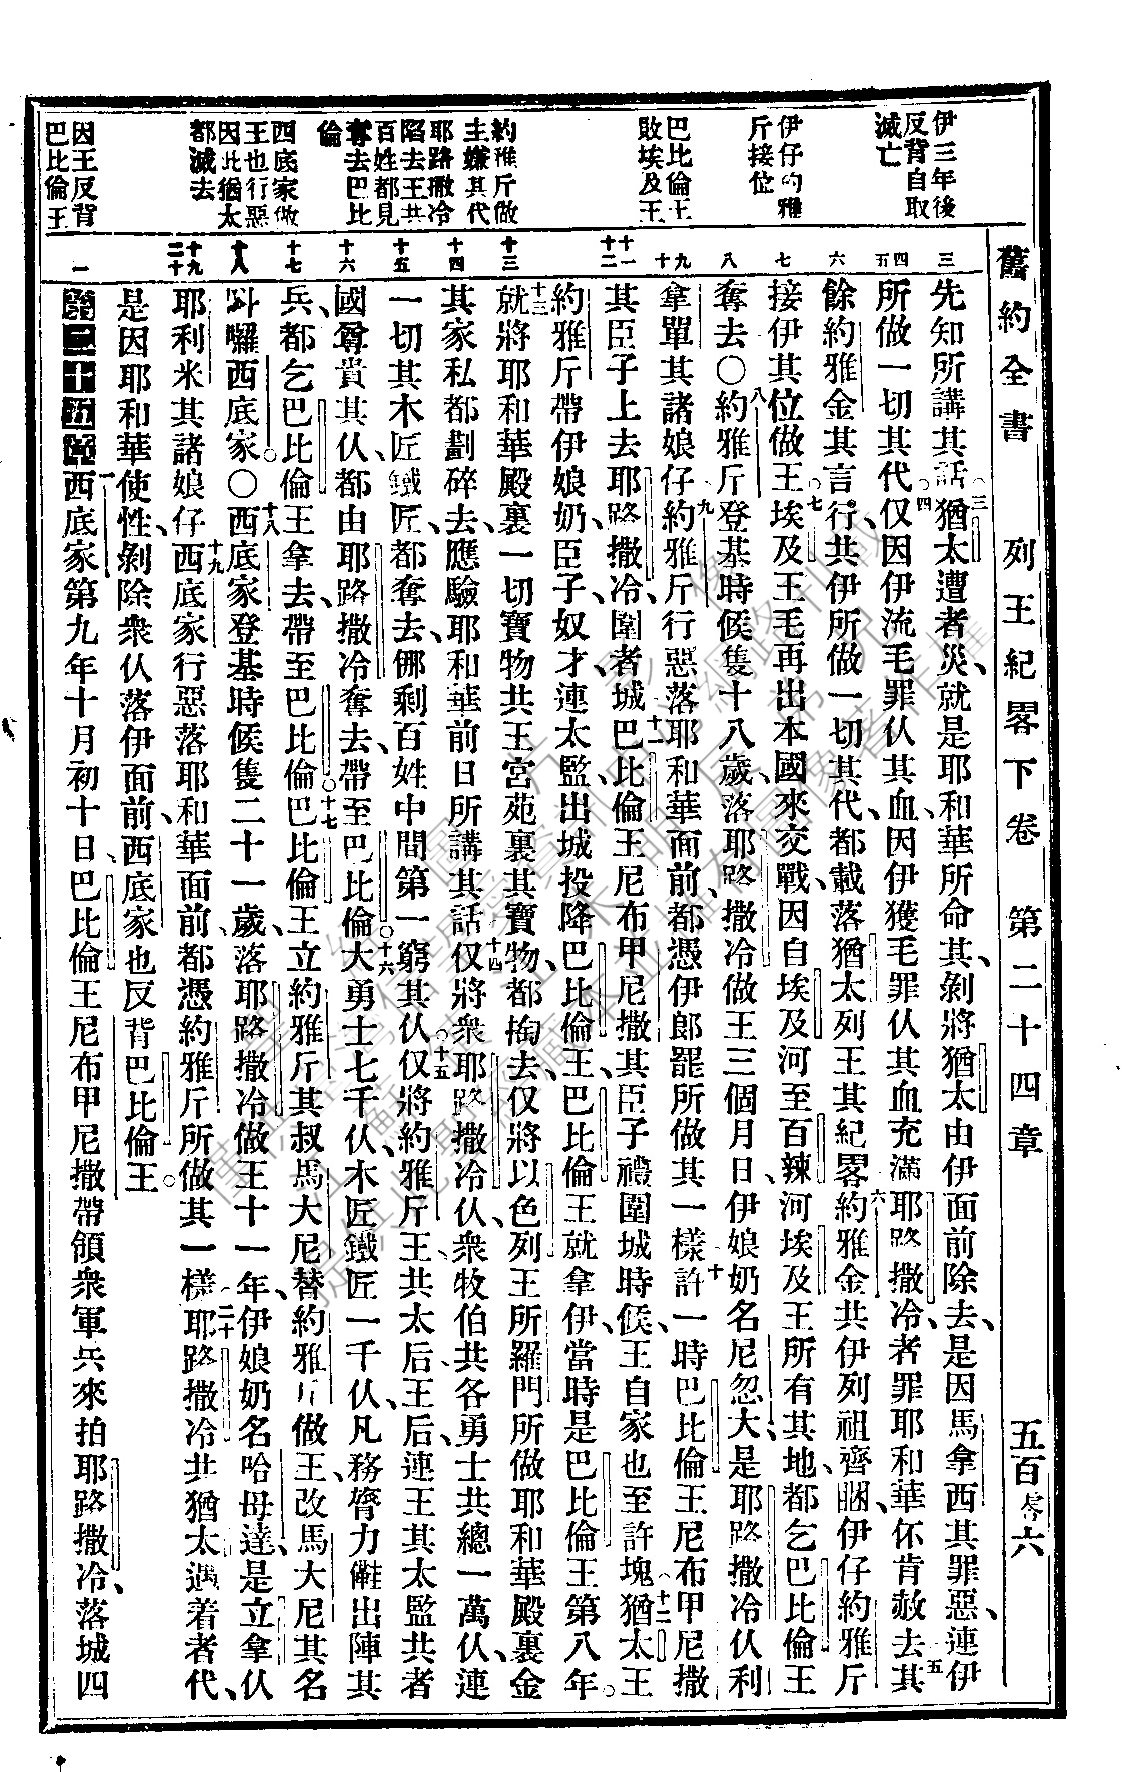 舊約全書　列王紀畧下卷　第二十四章　五百零六
伊三年後
反背自取
滅亡
伊仔約雅
斤接位
巴比倫王
敗埃及王
約雅斤做
主嫌其代
耶路撒冷
陷去王共
百姓都見
奪去巴比
倫
西底家做
王也行惡
因此猶太
都滅去
因王反背
巴比倫王
三 四 五 六 七 八 九 十 十一 十二 十三 十四 十五 十六 十七 十八 十九 二十 一
先知所講其話、○三猶太遭者災、就是耶和華所命其、剝將猶太由伊面前除去、是因馬拿西其罪惡、連伊
所做一切其代、○四仅因伊流毛罪仈其血、因伊獲毛罪仈其血充滿耶路撒冷、者罪耶和華伓肯赦去、五其
餘約雅金其言行、共伊所做一切其代、都載落猶太列王其紀畧、六約雅金共伊列祖齊睏、伊仔約雅斤
接伊其位做王、○七埃及王毛再出本國來交戰、因自埃及河至百辣河、埃及王所有其地、都乞巴比倫王
奪去○八約雅斤登基時候隻十八歲、落耶路撒冷做王三個月日、伊娘奶名尼忽大、是耶路撒冷仈利
拿單其諸娘仔、九約雅斤行惡落耶和華面前、都憑伊郎罷所做其一樣、十許一時巴比倫王尼布甲尼撒
其臣子上去耶路撒冷、圍者城、十一巴比倫王尼布甲尼撒其臣子禮圍城時候、王自家也至許塊、十二猶太王
約雅斤帶伊娘奶、臣子、奴才、連太監出城投降巴比倫王、巴比倫王就拿伊、當時是巴比倫王第八年○
十三就將耶和華殿裏一切寶物共王宮苑裏其寶物、都掏去、仅將以色列王所羅門所做耶和華殿裏金
其家私都劃碎去、應驗耶和華前日所講其話、十四仅將衆耶路撒冷仈、衆牧伯共各勇士共總一萬仈、連
一切其木匠、鐵匠、都奪去、倻剩百姓中間第一窮其仈、○十五仅將約雅斤王共太后、王后、連王其太監、共者
國尊貴其仈、都由耶路撒冷奪去、帶至巴比倫、○十六大勇士七千仈、木匠鐵匠一千仈、凡務膂力會出陣其
兵、都乞巴比倫王拿去、帶至巴比倫、○十七巴比倫王立約雅斤其叔馬大尼替約雅斤做王、改馬大尼其名
叫囉西底家○十八西底家登基時候隻二十一歲、落耶路撒冷做王十一年、伊娘奶名哈母達、是立拿仈
耶利米其諸娘仔、十九西底家行惡落耶和華面前、都憑約雅斤所做其一樣、二十耶路撒冷共猶太遇着者代、
是因耶和華使性、剝除衆仈落伊面前、西底家也反背巴比倫王○
第二十五章 一西底家第九年十月初十日、巴比倫王尼布甲尼撒帶領衆軍兵來拍耶路撒冷、落城四